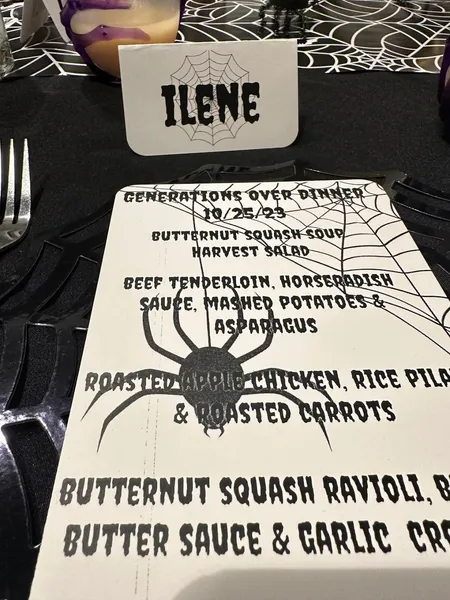 ILENE
GENERATIONS OVER DINNER
10/25/23
BUTTERNUT SQUASH SOUP
HARVEST SALAD
BEEF TENDERLOIN, HORSERADISH
SAUCE, MASHED POTATOES &
ASPARAGUS
ROASTED APPLE CHICKEN, RICE
& ROASTED CARROTS
BUTTERNUT SQUASH RAVIOLI,
BUTTER SAUCE & GARLIC